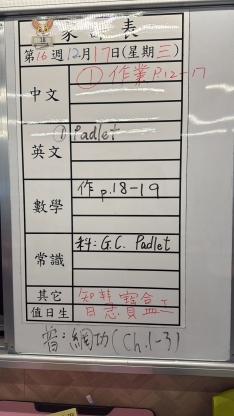 家課表
第16週12月17日(星期三)
中文 ①作業P.12-17
英文 ①Padlet
數學 作p.18-19
常識 科:G.C. Padlet
其它
值日生
習:網功(Ch.1-3)